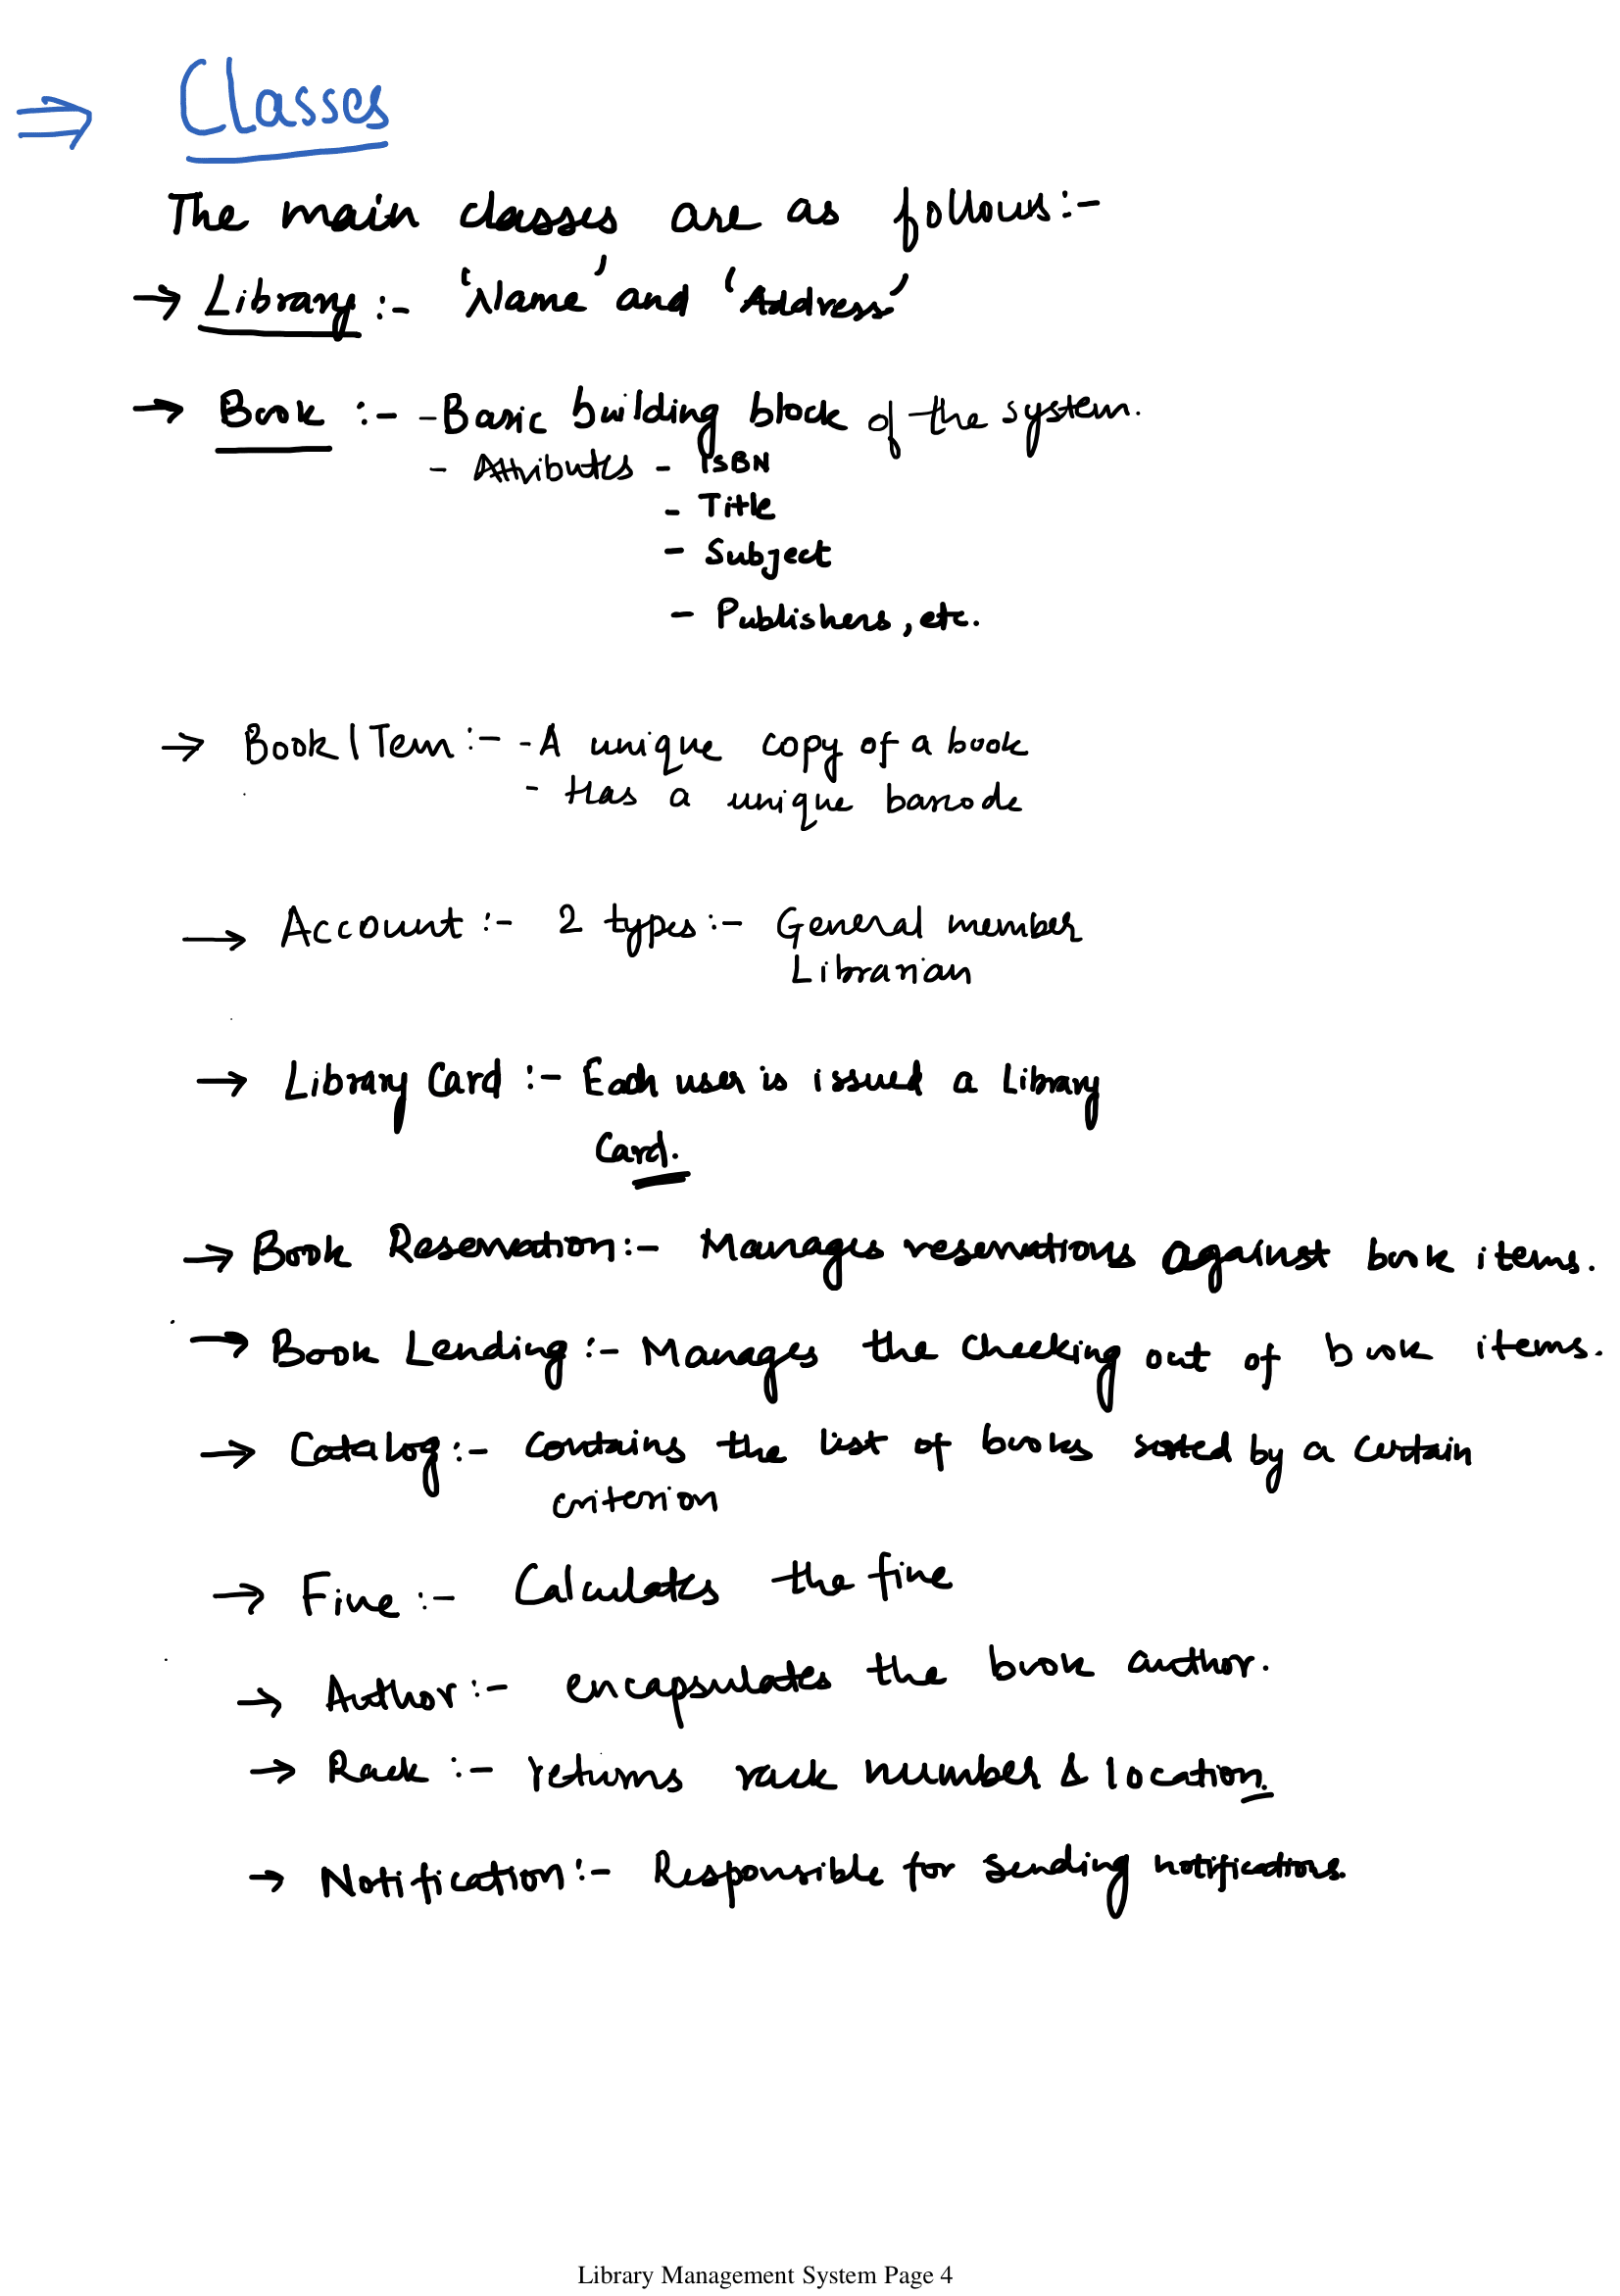 ⇒ Classes
The main classes are as follows:-
→ Library :- 'Name' and 'Address'
→ Book :- - Basic building block of the system.
- Attributes - ISBN
- Title
- Subject
- Publishers, etc.
→ Book ITem :- - A unique copy of a book
- Has a unique barcode
→ Account :- 2 types :- General member
Librarian
→ Library Card :- Each user is issued a Library
Card.
→ Book Reservation :- Manages reservations against book items.
→ Book Lending :- Manages the checking out of book items.
→ Catalog :- contains the list of books sorted by a certain
criterion
→ Fine :- Calculates the fine
→ Author :- encapsulates the book author.
→ Rack :- returns rack number & location.
→ Notification :- Responsible for sending notifications.
Library Management System Page 4